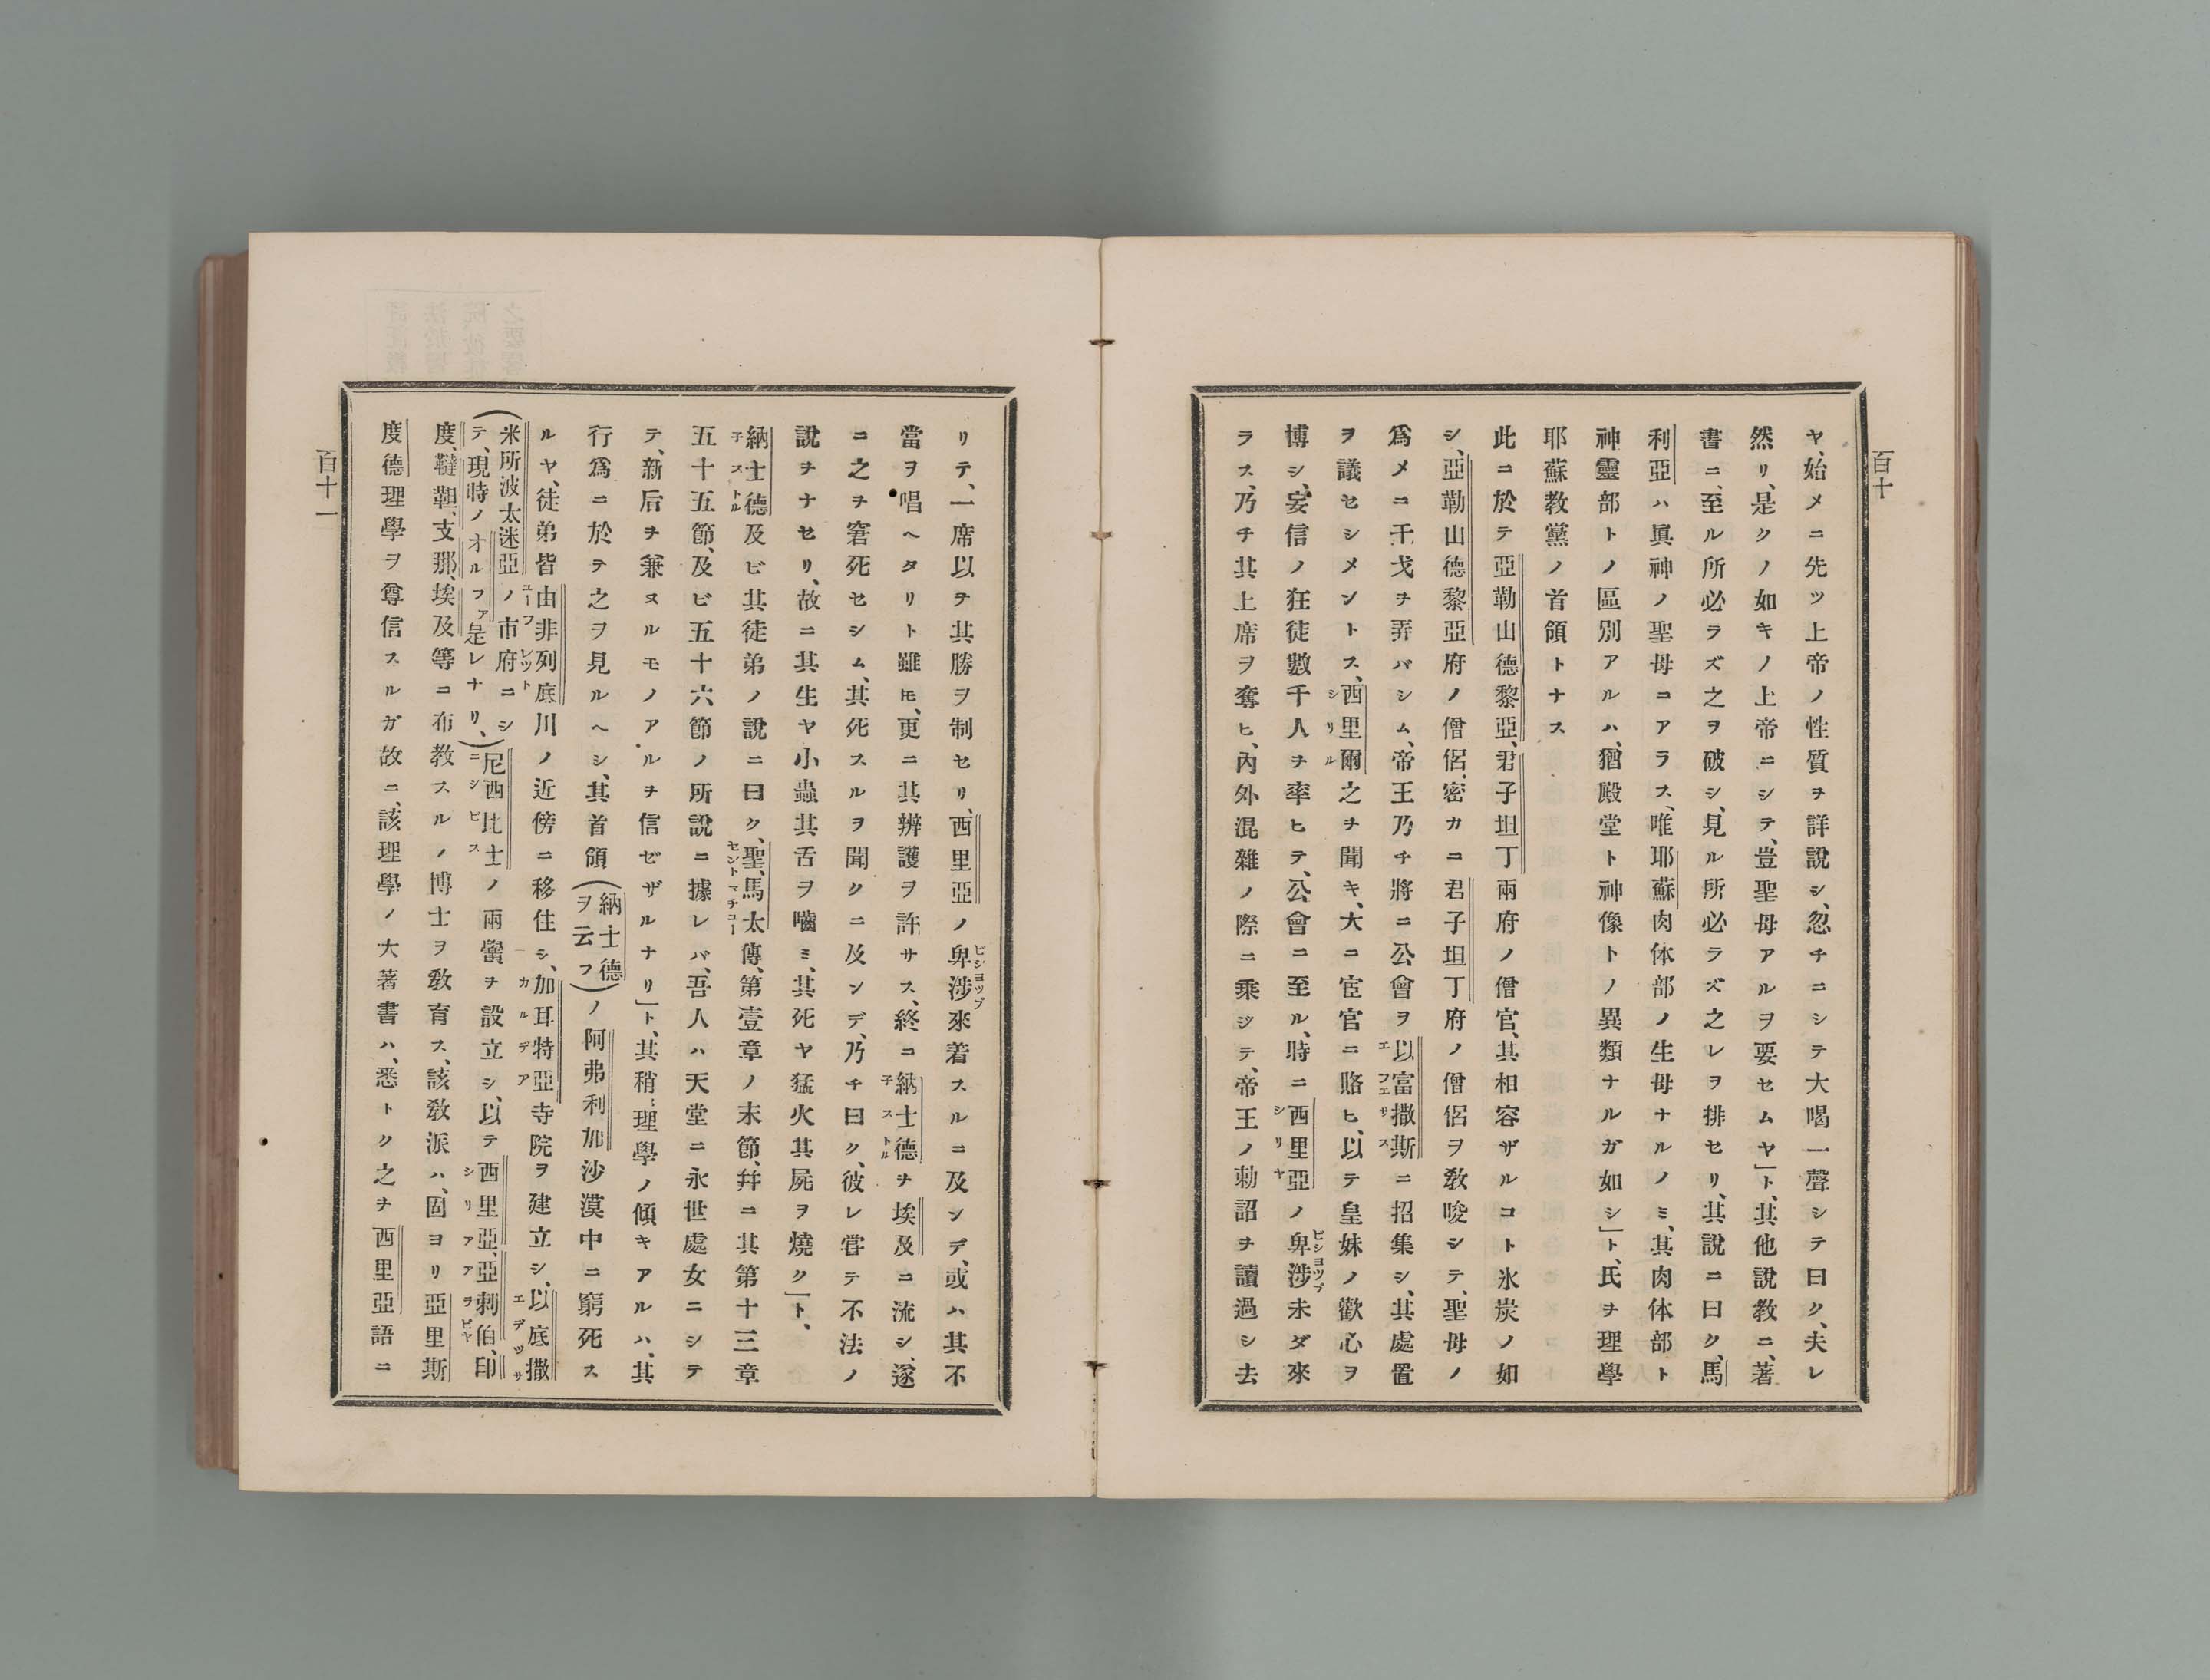 百十
ヤ、始メニ先ツ上帝ノ性質ヲ詳說シ、忽チニシテ大喝一聲シテ曰ク、夫レ
然リ、是クノ如キノ上帝ニシテ、豈聖母アルヲ要セムヤ」ト、其他說敎ニ、著
書ニ、至ル所必ラズ之ヲ破シ、見ル所必ラズ之レヲ排セリ、其說ニ曰ク、馬
利亞ハ眞神ノ聖母ニアラス、唯耶蘇肉体部ノ生母ナルノミ、其肉体部ト
神靈部トノ區別アルハ、猶殿堂ト神像トノ異類ナルガ如シ」ト、氏ヲ理學
耶蘇敎黨ノ首領トナス
此ニ於テ亞勒山德黎亞、君子坦丁兩府ノ僧官、其相容ザルコト氷炭ノ如
シ、亞勒山德黎亞府ノ僧侶、密カニ君子坦丁府ノ僧侶ヲ敎唆シテ、聖母ノ
爲メニ干戈ヲ弄バシム、帝王乃チ將ニ公會ヲ以富撒斯エフエサスニ招集シ、其處置
ヲ議セシメントス、西里爾シリル之ヲ聞キ、大ニ宦官ニ賂ヒ、以テ皇妹ノ歡心ヲ
博シ、妄信ノ狂徒數千人ヲ率ヒテ、公會ニ至ル、時ニ西里亞シリヤノ卑涉ビショップ未ダ來
ラス、乃チ其上席ヲ奪ヒ、內外混雜ノ際ニ乘ジテ、帝王ノ勅詔ヲ讀過シ去
リテ、一席以ヲ其勝ヲ制セリ、西里亞ノ卑涉ビショップ來着スルニ及ンデ、或ハ其不
當ヲ唱ヘタリト雖モ、更ニ其辨護ヲ許サス、終ニ納士德子ストルヲ埃及ニ流シ、遂
ニ之ヲ窘死セシム、其死スルヲ聞クニ及ンデ、乃チ曰ク、彼レ甞テ不法ノ
說ヲナセリ、故ニ其生ヤ小蟲其舌ヲ嚙ミ、其死ヤ猛火其屍ヲ燒ク」ト、
納士德子ストル及ビ其徒弟ノ說ニ曰ク、聖馬太セントマチユー傳、第壹章ノ末節、幷ニ其第十三章
五十五節、及ビ五十六節ノ所說ニ據レバ、吾人ハ天堂ニ永世處女ニシテ
テ、新后ヲ兼ヌルモノアルヲ信ゼザルナリ」ト、其稍〻理學ノ傾キアルハ、其
行爲ニ於ヲ之ヲ見ルヘシ、其首領(納士德ヲ云フ)ノ阿弗利加沙漠中ニ窮死ス
ルヤ、徒弟皆由非列底ユーフレット川ノ近傍ニ移住シ、加耳特亞カルデア寺院ヲ建立シ、以底撒エデッサ
(米所波太迷亞ノ市府ニシテ、現時ノオルファ是レナリ、)尼西比士ニシビスノ兩黌ヲ設立シ、以テ西里亞シリア、亞剌伯アラビヤ、印
度、韃靼、支那、埃及等ニ布敎スルノ博士ヲ敎育ス、該敎派ハ、固ヨリ亞里斯
度德理學ヲ尊信スルガ故ニ、該理學ノ大著書ハ、悉トク之ヲ西里亞語ニ
百十一